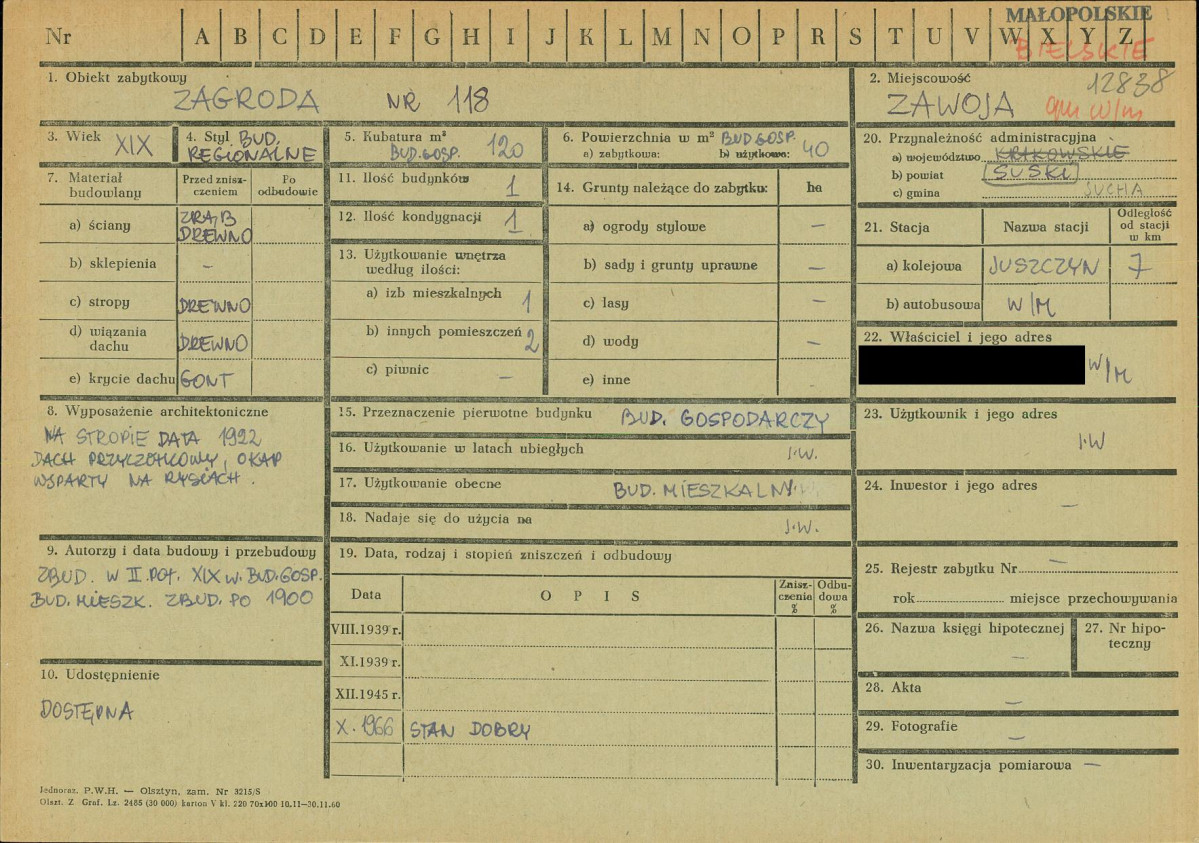 MAŁOPOLSKIE
Nr A B C D E F G H I J K L M N O P R S T U V W X Y Z
BIELSKIE
1. Obiekt zabytkowy
ZAGRODA NR 118
2. Miejscowość 12838
ZAWOJA gm w/m
3. Wiek XIX
4. Styl BUD.
REGIONALNE
5. Kubatura m³
BUD.GOSP. 120
6. Powierzchnia w m² BUD GOSP.
a) zabytkowa: b) użytkowa: 40
20. Przynależność administracyjna
a) województwo KRAKOWSKIE
b) powiat SUSKI
c) gmina SUCHA
7. Materiał budowlany
Przed zniszczeniem
Po odbudowie
a) ściany ZRĄB
DREWNO
b) sklepienia –
c) stropy DREWNO
d) wiązania dachu DREWNO
e) krycie dachu GONT
11. Ilość budynków 1
12. Ilość kondygnacji 1
13. Użytkowanie wnętrza
według ilości:
a) izb mieszkalnych 1
b) innych pomieszczeń 2
c) piwnic –
14. Grunty należące do zabytku: ha
a) ogrody stylowe –
b) sady i grunty uprawne –
c) lasy –
d) wody –
e) inne
21. Stacja Nazwa stacji Odległość od stacji w km
a) kolejowa JUSZCZYN 7
b) autobusowa W/M
22. Właściciel i jego adres
W/M
8. Wyposażenie architektoniczne
NA STROPIE DATA 1922
DACH PRZYCZÓŁKOWY, OKAP
WSPARTY NA RYSIACH.
15. Przeznaczenie pierwotne budynku BUD. GOSPODARCZY
16. Użytkowanie w latach ubiegłych J.W.
17. Użytkowanie obecne BUD. MIESZKALNY
18. Nadaje się do użycia na J.W.
23. Użytkownik i jego adres
J.W
24. Inwestor i jego adres
–
9. Autorzy i data budowy i przebudowy
ZBUD. W II POŁ. XIX W. BUD.GOSP.
BUD. MIESZK. ZBUD. PO 1900
19. Data, rodzaj i stopień zniszczeń i odbudowy
Data OPIS Zniszczenia % Odbudowa %
VIII.1939 r.
XI.1939 r.
XII.1945 r.
X. 1966 STAN DOBRY
25. Rejestr zabytku Nr –
rok miejsce przechowywania
26. Nazwa księgi hipotecznej –
27. Nr hipoteczny
28. Akta –
29. Fotografie –
30. Inwentaryzacja pomiarowa –
10. Udostępnienie
DOSTĘPNA
Jednoraz. P.W.H. — Olsztyn, zam. Nr 3215/S
Olszt. Z. Graf. Lz. 2485 (30 000) karton V kl. 220 70x100 10.11—30.11.60